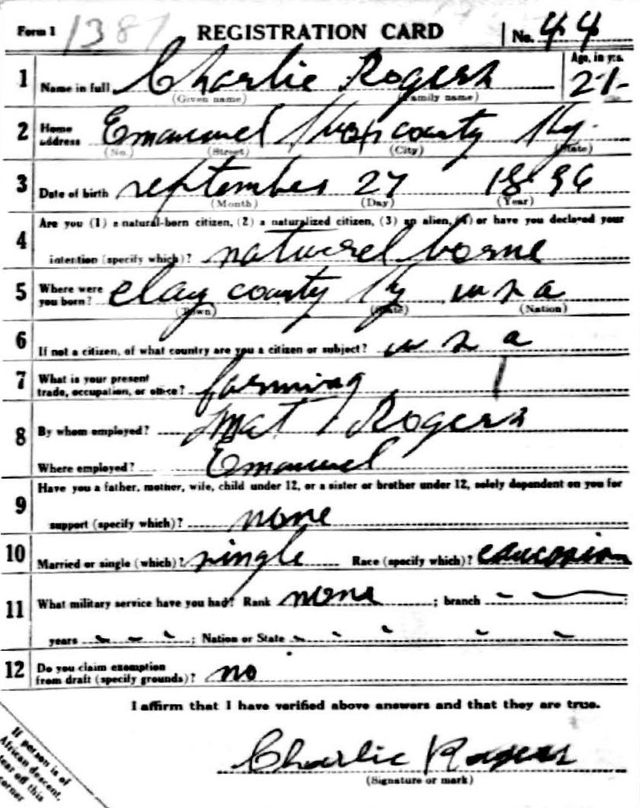 Form 1 1387 REGISTRATION CARD No. 44
1 Name in full Charlie Rogers Age, in yrs. 21
(Given name) (Family name)
2 Home address Emanuel Knox county Ky.
(No.) (Street) (City) (State)
3 Date of birth september 27 1896
(Month) (Day) (Year)
Are you (1) a natural-born citizen, (2) a naturalized citizen, (3) an alien, (4) or have you declared your
4 intention (specify which)? naturel borne
5 Where were you born? clay county Ky u s a
(Town) (State) (Nation)
6 If not a citizen, of what country are you a citizen or subject? u s a
7 What is your present trade, occupation, or office? farming
8 By whom employed? Mat Rogers
Where employed? Emanuel
Have you a father, mother, wife, child under 12, or a sister or brother under 12, solely dependent on you for
9 support (specify which)? none
10 Married or single (which)? single Race (specify which)?
11 What military service have you had? Rank none ; branch
years ; Nation or State
12 Do you claim exemption from draft (specify grounds)? no
I affirm that I have verified above answers and that they are true.
Charlie Rogers
(Signature or mark)
If person is of
African descent,
tear off this
corner